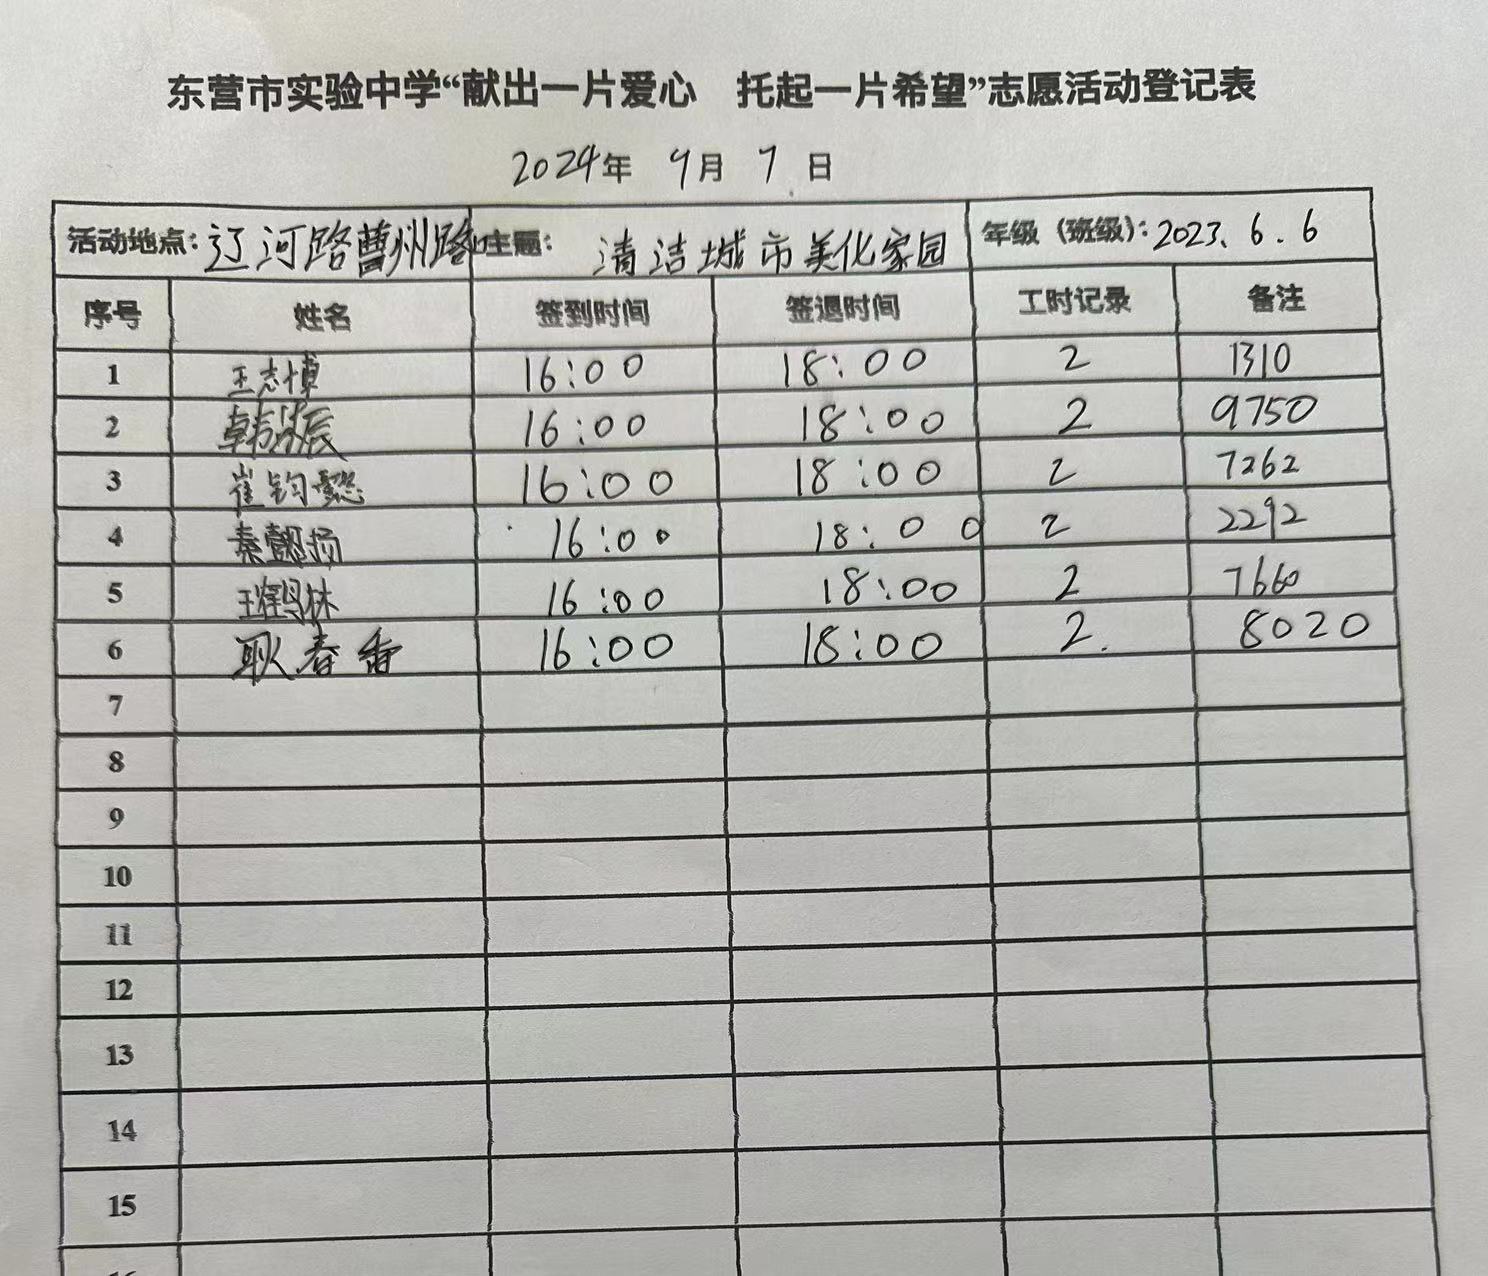 东营市实验中学“献出一片爱心 托起一片希望”志愿活动登记表
2024年 9月 7日
活动地点：辽河路曹州路 主题： 清洁城市美化家园 年级（班级）：2023.6.6
序号 姓名 签到时间 签退时间 工时记录 备注
1 王志博 16:00 18:00 2 1310
2 韩辰 16:00 18:00 2 9750
3 崔钧懿 16:00 18:00 2 7262
4 秦懿扬 16:00 18:00 2 2292
5 王鹤林 16:00 18:00 2 7660
6 耿春香 16:00 18:00 2. 8020
7
8
9
10
11
12
13
14
15